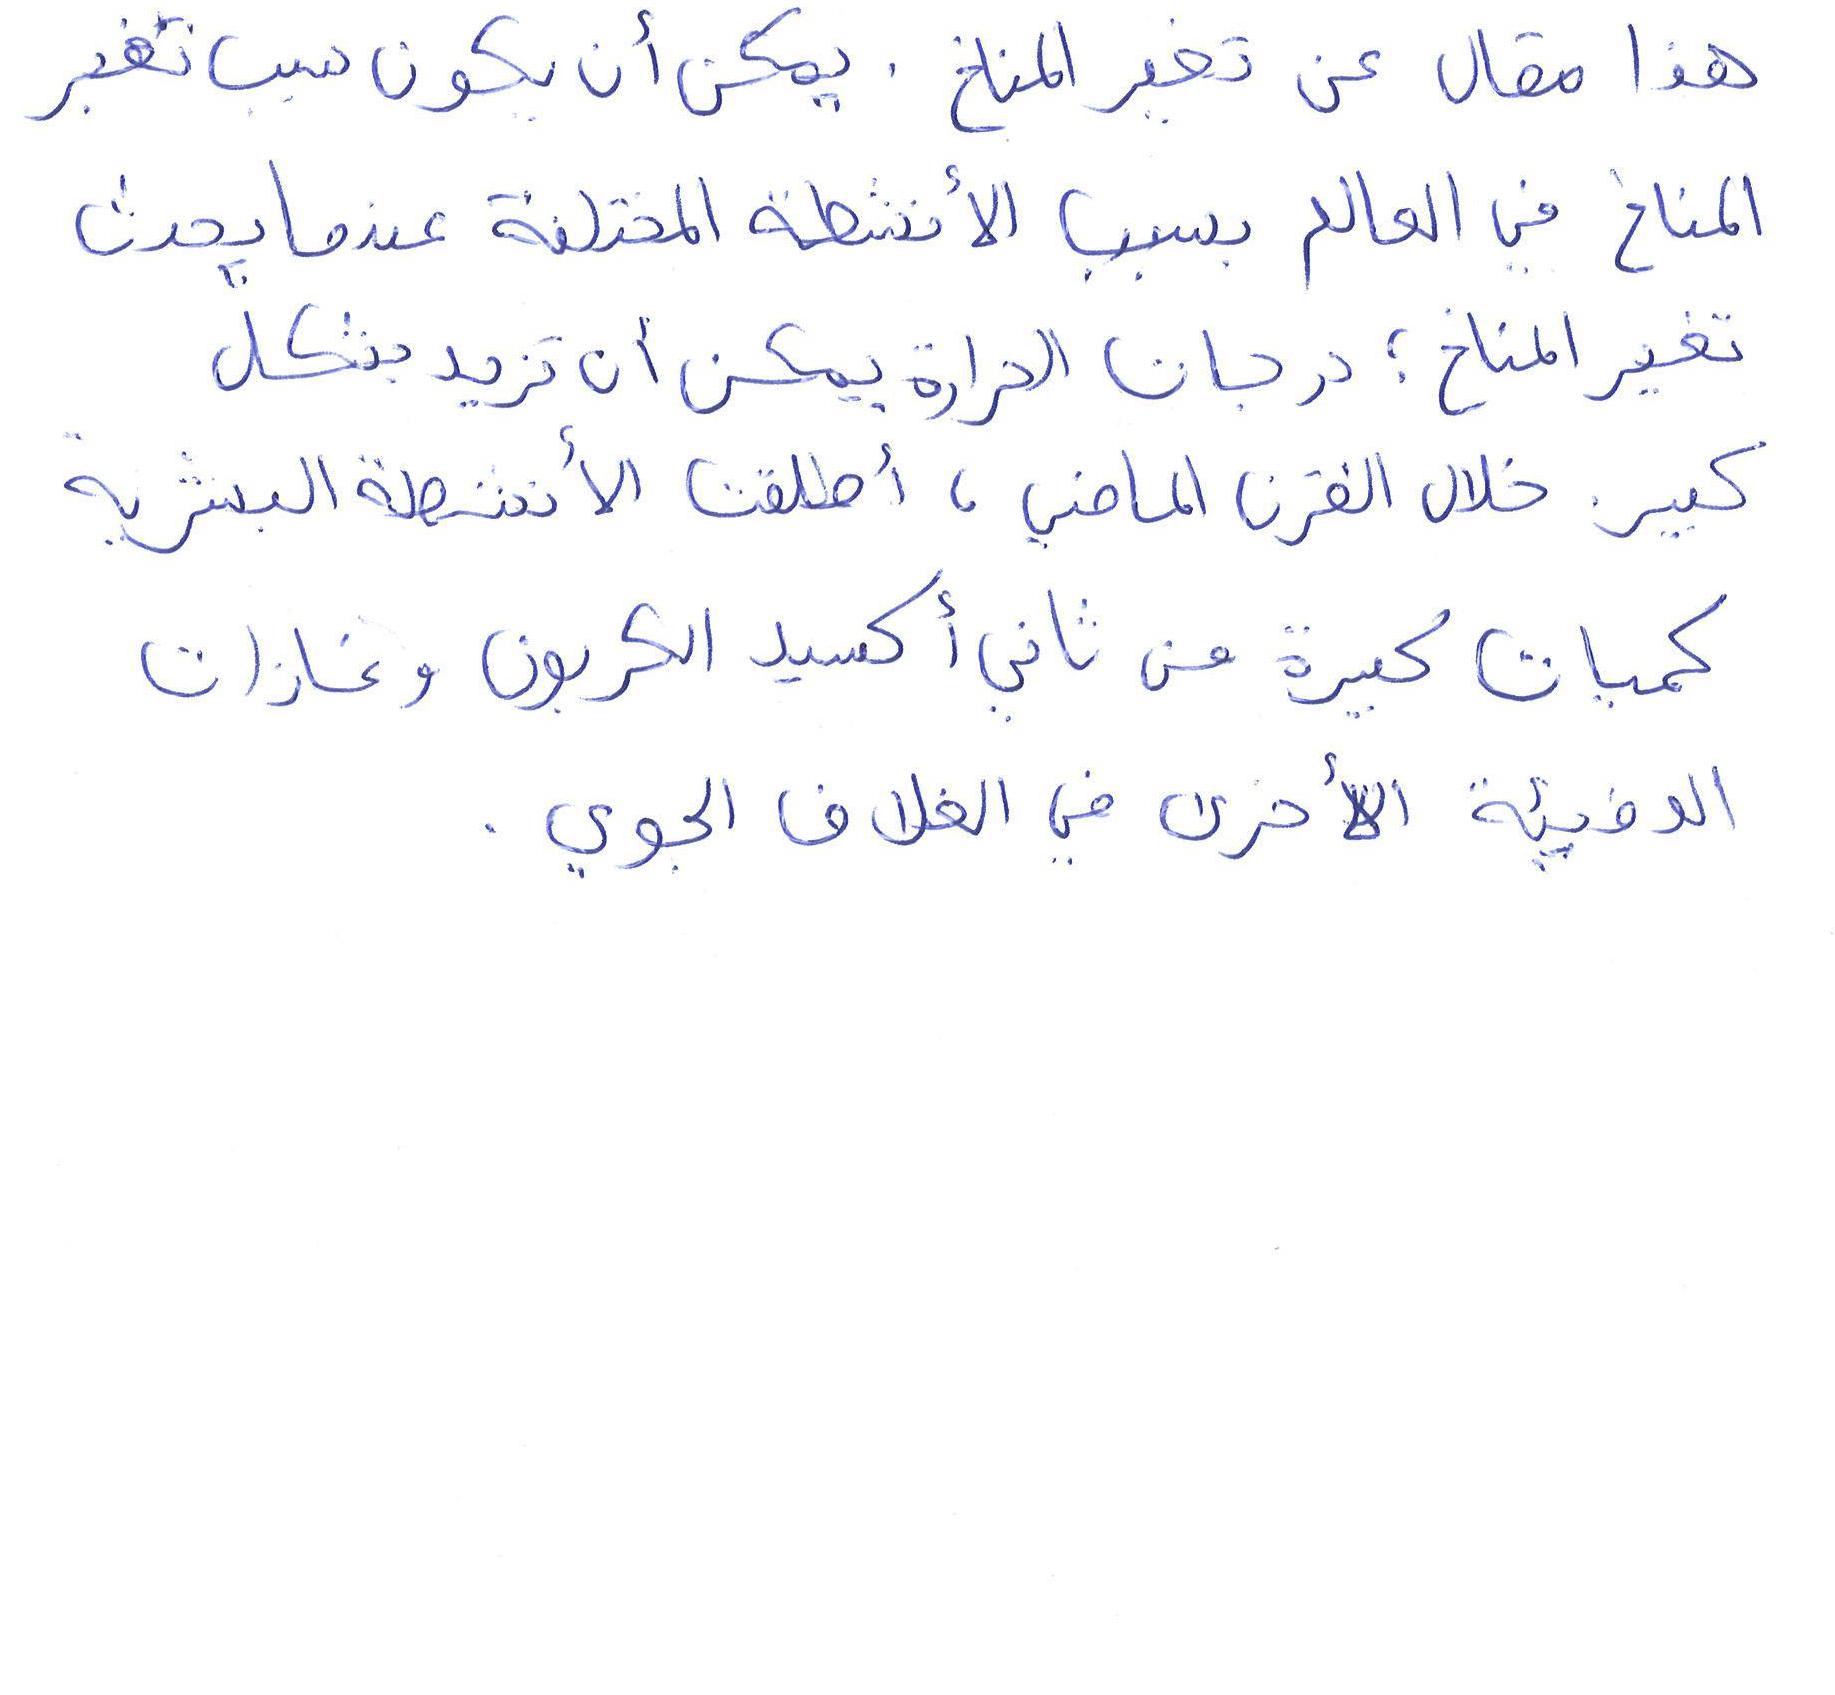 هذا مقال عن تغير المناخ . يمكن أن يكون سبب تغير
المناخ في العالم بسبب الأنشطة المختلفة عندما يحدث
تغير المناخ ؛ درجات الحرارة يمكن أن تزيد بشكل
كبير . خلال القرن الماضي ، أطلقت الأنشطة البشرية
كميات كبيرة من ثاني أكسيد الكربون وغازات
الدفيئة الأخرى في الغلاف الجوي .